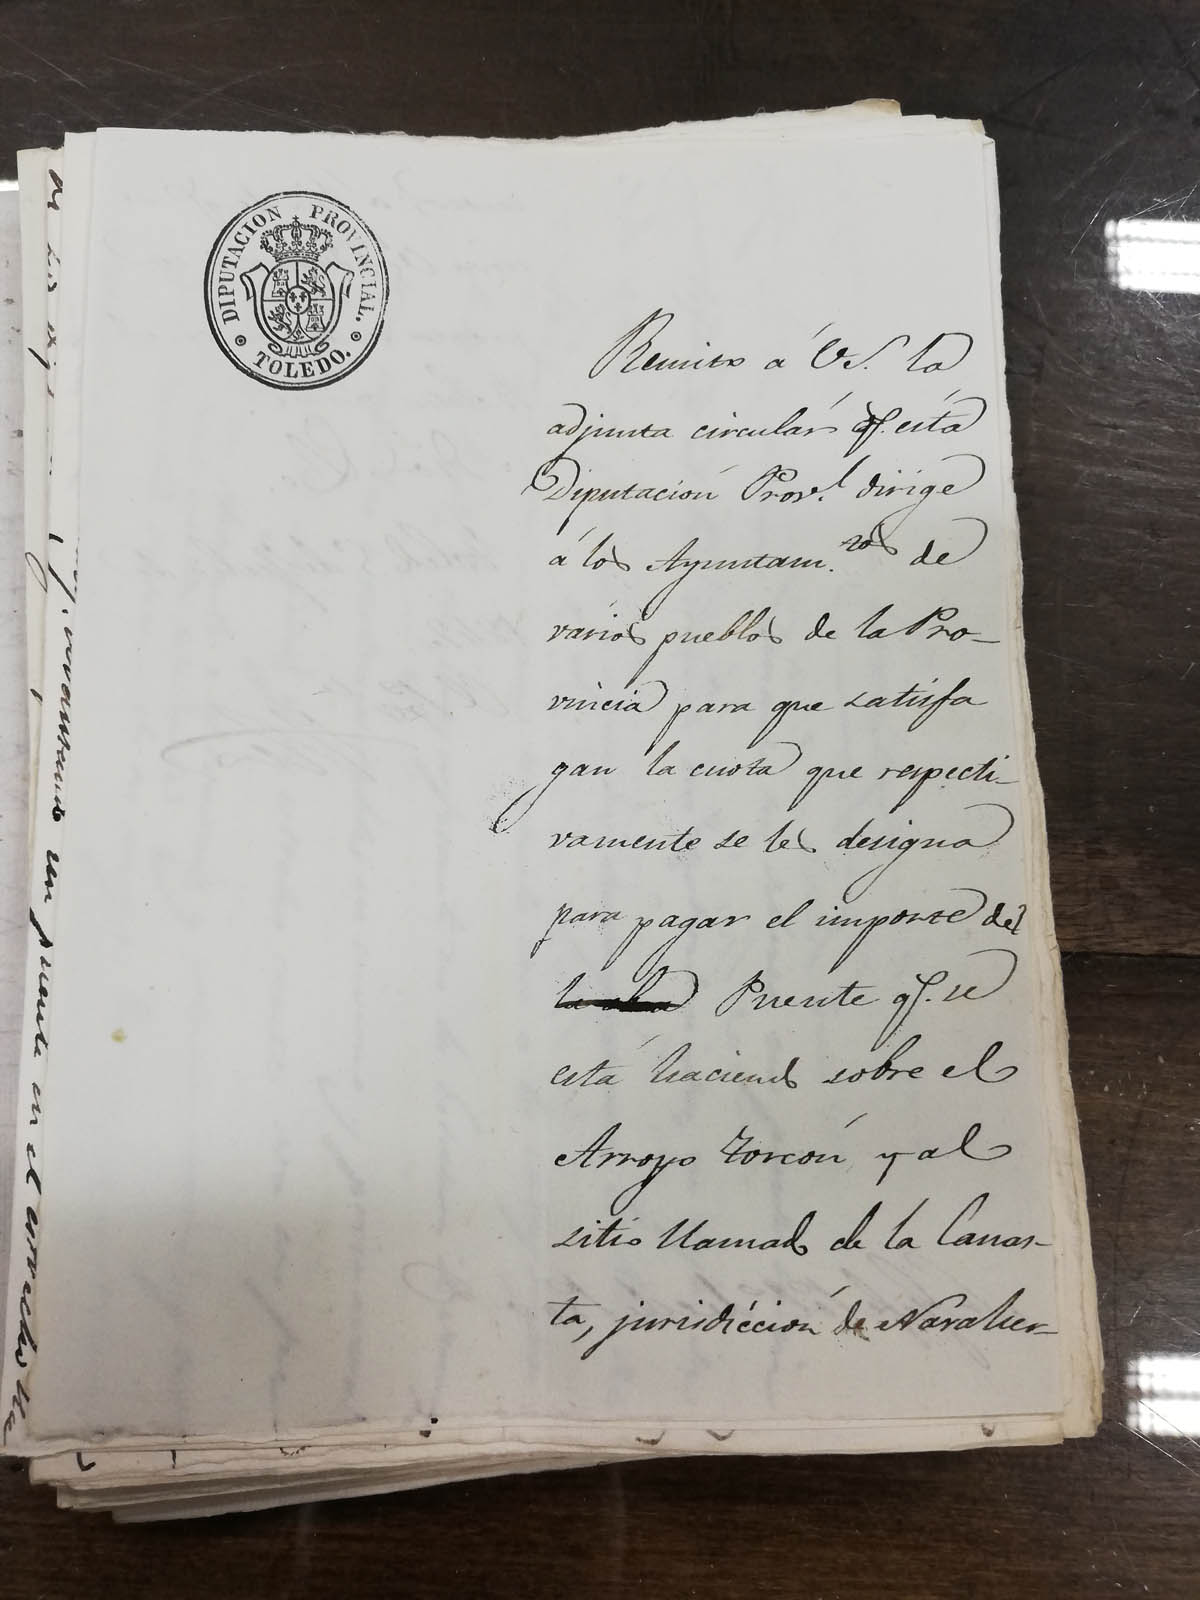 DIPUTACION PROVINCIAL.
TOLEDO.
Remito á V.S. la
adjunta circulár qe. ésta
Diputación Provl. dirige
á los Ayuntam.tos de
varios pueblos de la Pro-
vincia para que satisfa
gan la cuota que respecti-
vamente se les designa
para pagar el importe del
la obra Puente qe. se
está haciendo sobre el
Arroyo Torcón, y al
sitio llamado de la Canas-
ta, jurisdicción de Navaher-
levantando un puente en el estrecho de la